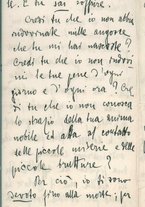 te. E tu sai soffrire.
Credi tu che io non abbia
indovinate mille angosce
che tu mi hai nascoste?
Credi tu che io non indo-
vini le tue pene d'ogni
giorno e d'ogni ora? Cre-
di tu che io non conosca
lo strazio della tua anima
nobile ed altera al contatto
delle piccole miserie e delle
piccole brutture?
Per ciò, io ti sono
devoto fino alla morte; per